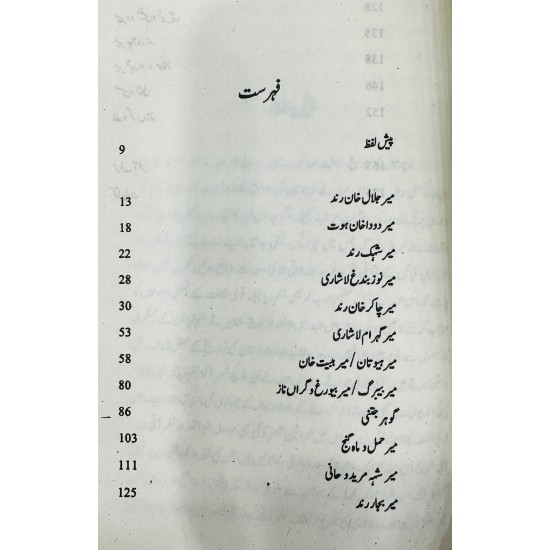 فہرست
پیش لفظ 9
میر جلال خان رند 13
میر دودا خان ہوت 18
میر شہک رند 22
میر نوز بندغ لاشاری 28
میر چاکر خان رند 30
میر گہرام لاشاری 53
میر ہیوتان / میر ہیبت خان 58
میر بیبرگ / میر بیورغ و گراں ناز 80
گوہر جتنی 86
میر حمل و ماہ گنج 103
میر شہہ مرید و حانی 111
میر بجار رند 125
128
135
138
146
152